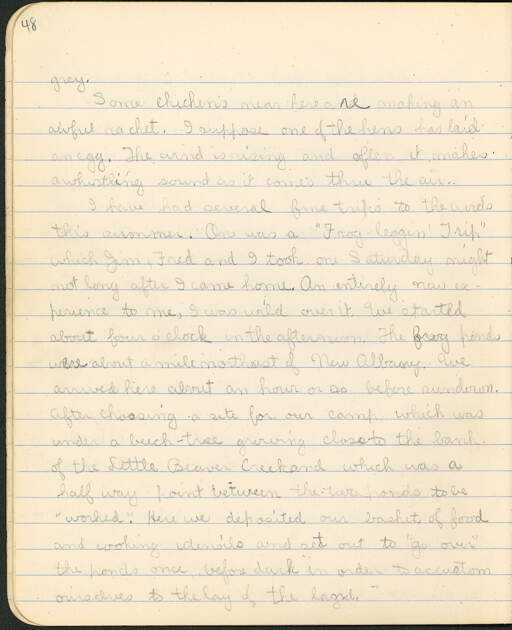 48
grey.
Some chickens near here are making an
awful rachet. I suppose one of the hens has laid
an egg. The wind is rising and often it makes
a whistling sound as it comes thru the air..
I have had several fine trips to the woods
this summer. One was a "Frog-leggin' Trip"
which Jim, Fred and I took one Saturday night
not long after I came home. An entirely new ex-
perience to me, I was wild over it. We started
about four o'clock in the afternoon. The ponds
were about a mile northeast of New Albany. We
arrived here about an hour or so before sundown.
After choosing a site for our camp which was
under a beech-tree growing close to the bank
of the Little Beaver Creek and which was a
half way point between the two ponds to be
"worked". Here we deposited our basket of food
and cooking utensils and set out to "go over"
the ponds once before dusk in order to accustom
ourselves to the lay of the land.